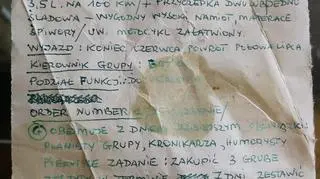 3,5 L. NA 100 KM / + PRZYCZEPKA DWUOSOBOWO
ŚLADOWA – WYGODNY WYSOKI NAMIOT, MATERACE
ŚPIWORY / UW. MOTOCYKL ZAŁATWIONY.
WYJAZD: KONIEC CZERWCA POWRÓT POŁOWA LIPCA
KIEROWNIK GRUPY:
PODZIAŁ FUNKCJI:
ORDER NUMBER
OBEJMUJE Z DNIEM DZISIEJSZYM OBOWIĄZKI
PLANISTY GRUPY, KRONIKARZA, HUMORYSTY
PIERWSZE ZADANIE: ZAKUPIĆ 3 GRUBE
W TERMINIE 7 DNI ZESTAWIĆ